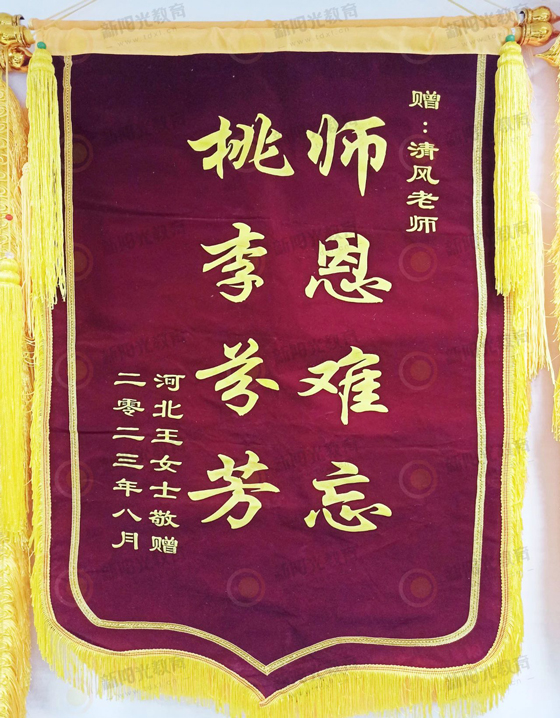 赠：清风老师
师恩难忘
桃李芬芳
河北王女士敬赠
二零二三年八月
新阳光教育